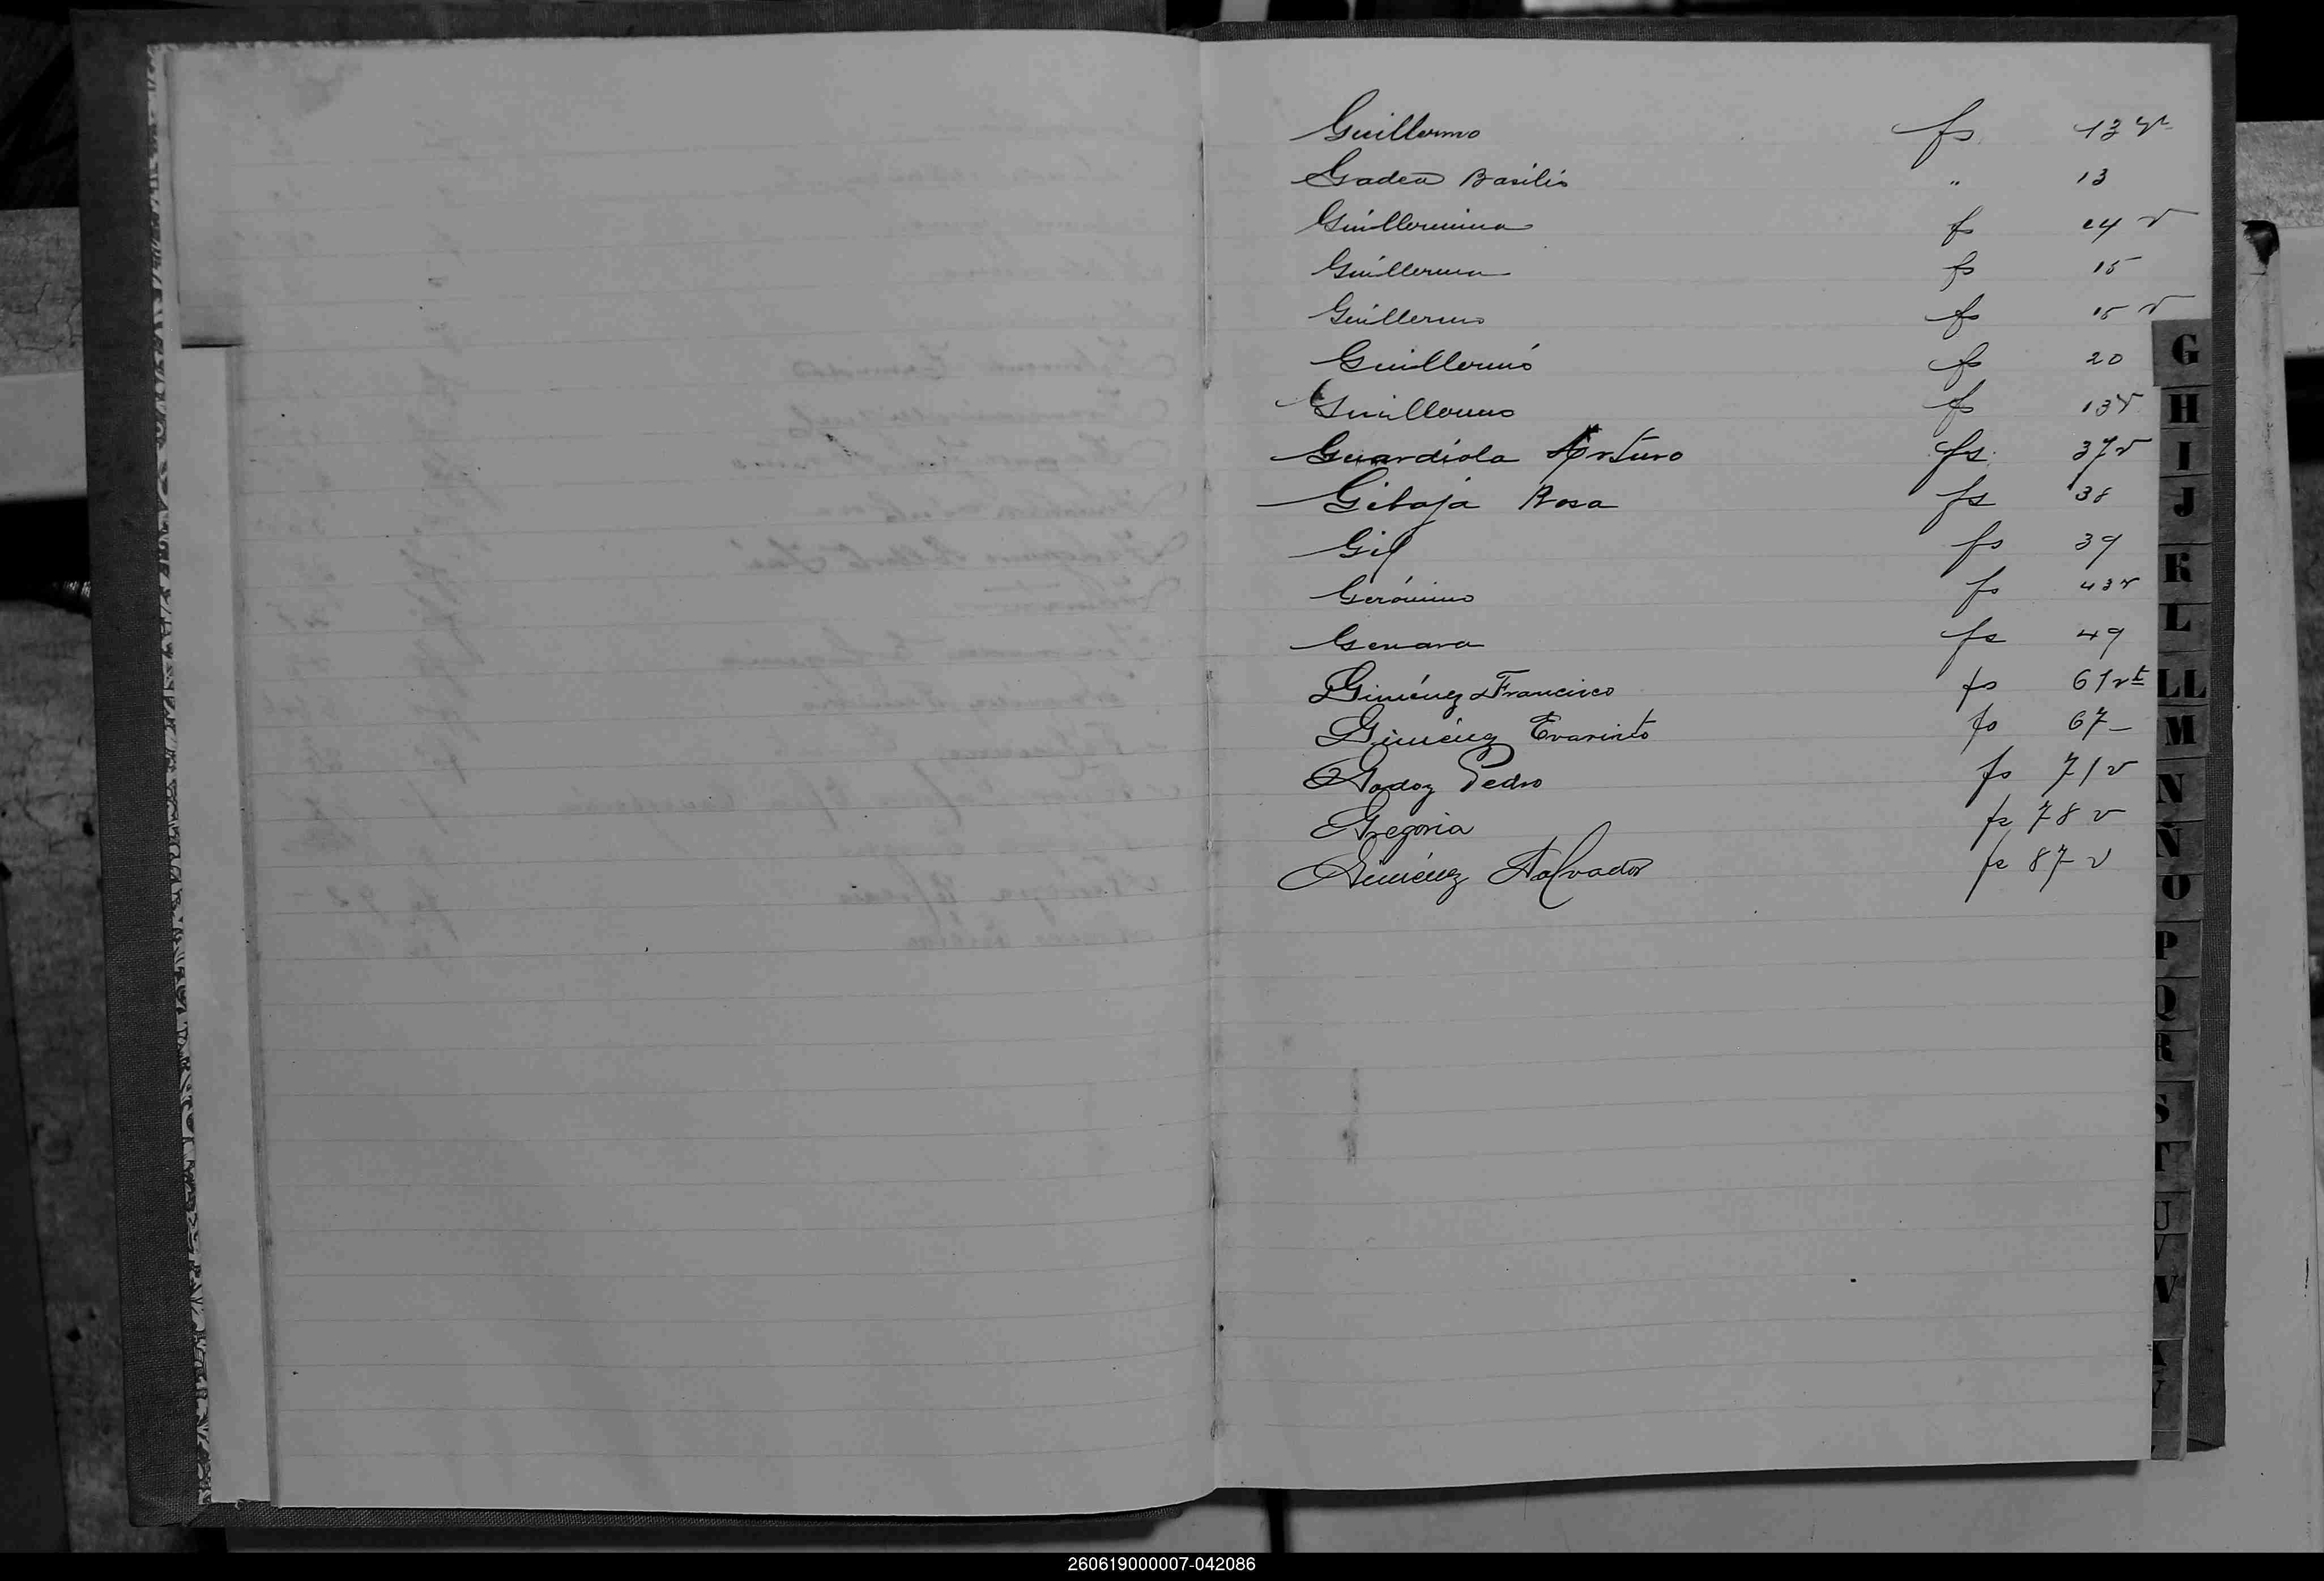 Guillermo fs 13 vt
Gadea Basilio " 13
Guillermina fs 14 v
Guillerma fs 15
Guillermo fs 15 v
Guillermo fs 20
Guillermo fs 13v
Guardiola Arturo fs. 37v
Gibaja Rosa fs 38
Gil fs 39
Gerónimo fs 43v
Genara fs 49
Giménez Francisco fs 61vt
Giménez Evaristo fs 67-
Godoy Pedro fs 71v
Gregoria fs 78 v
Giménez Salvador fs 87 v
G
H
I
J
K
L
LL
M
N
Ñ
O
P
Q
R
S
T
U
V
260619000007-042086